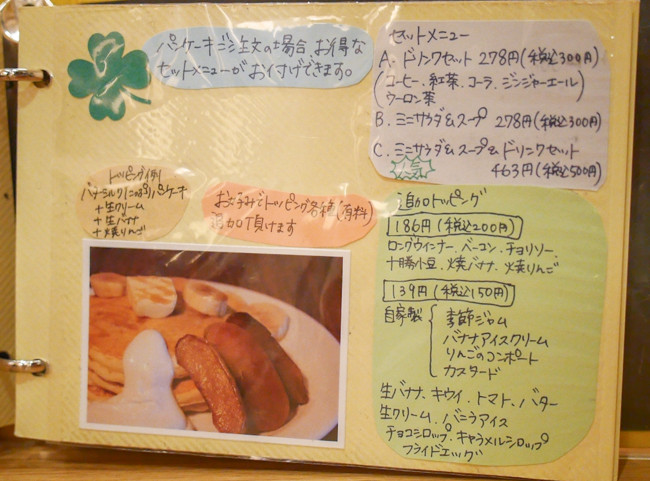 パンケーキご注文の場合、お得な
セットメニューがお付けできます。
セットメニュー
A、ドリンクセット 278円(税込300円)
(コーヒー、紅茶、コーラ、ジンジャーエール)
ウーロン茶
B、ミニサラダ&スープ 278円(税込300円)
C、ミニサラダ&スープ&ドリンクセット
463円(税込500円)
トッピング例
パンケーキ
+生クリーム
+生バナナ
+焼りんご
お好みでトッピング各種(有料)
追加頂けます
追加トッピング
186円(税込200円)
ロングウインナー、ベーコン、チョリソー
十勝小豆、焼バナナ、焼りんご
139円(税込150円)
自家製
季節ジャム
バナナアイスクリーム
りんごのコンポート
カスタード
生バナナ、キウイ、トマト、バター
生クリーム、バニラアイス
チョコシロップ、キャラメルシロップ
フライドエッグ